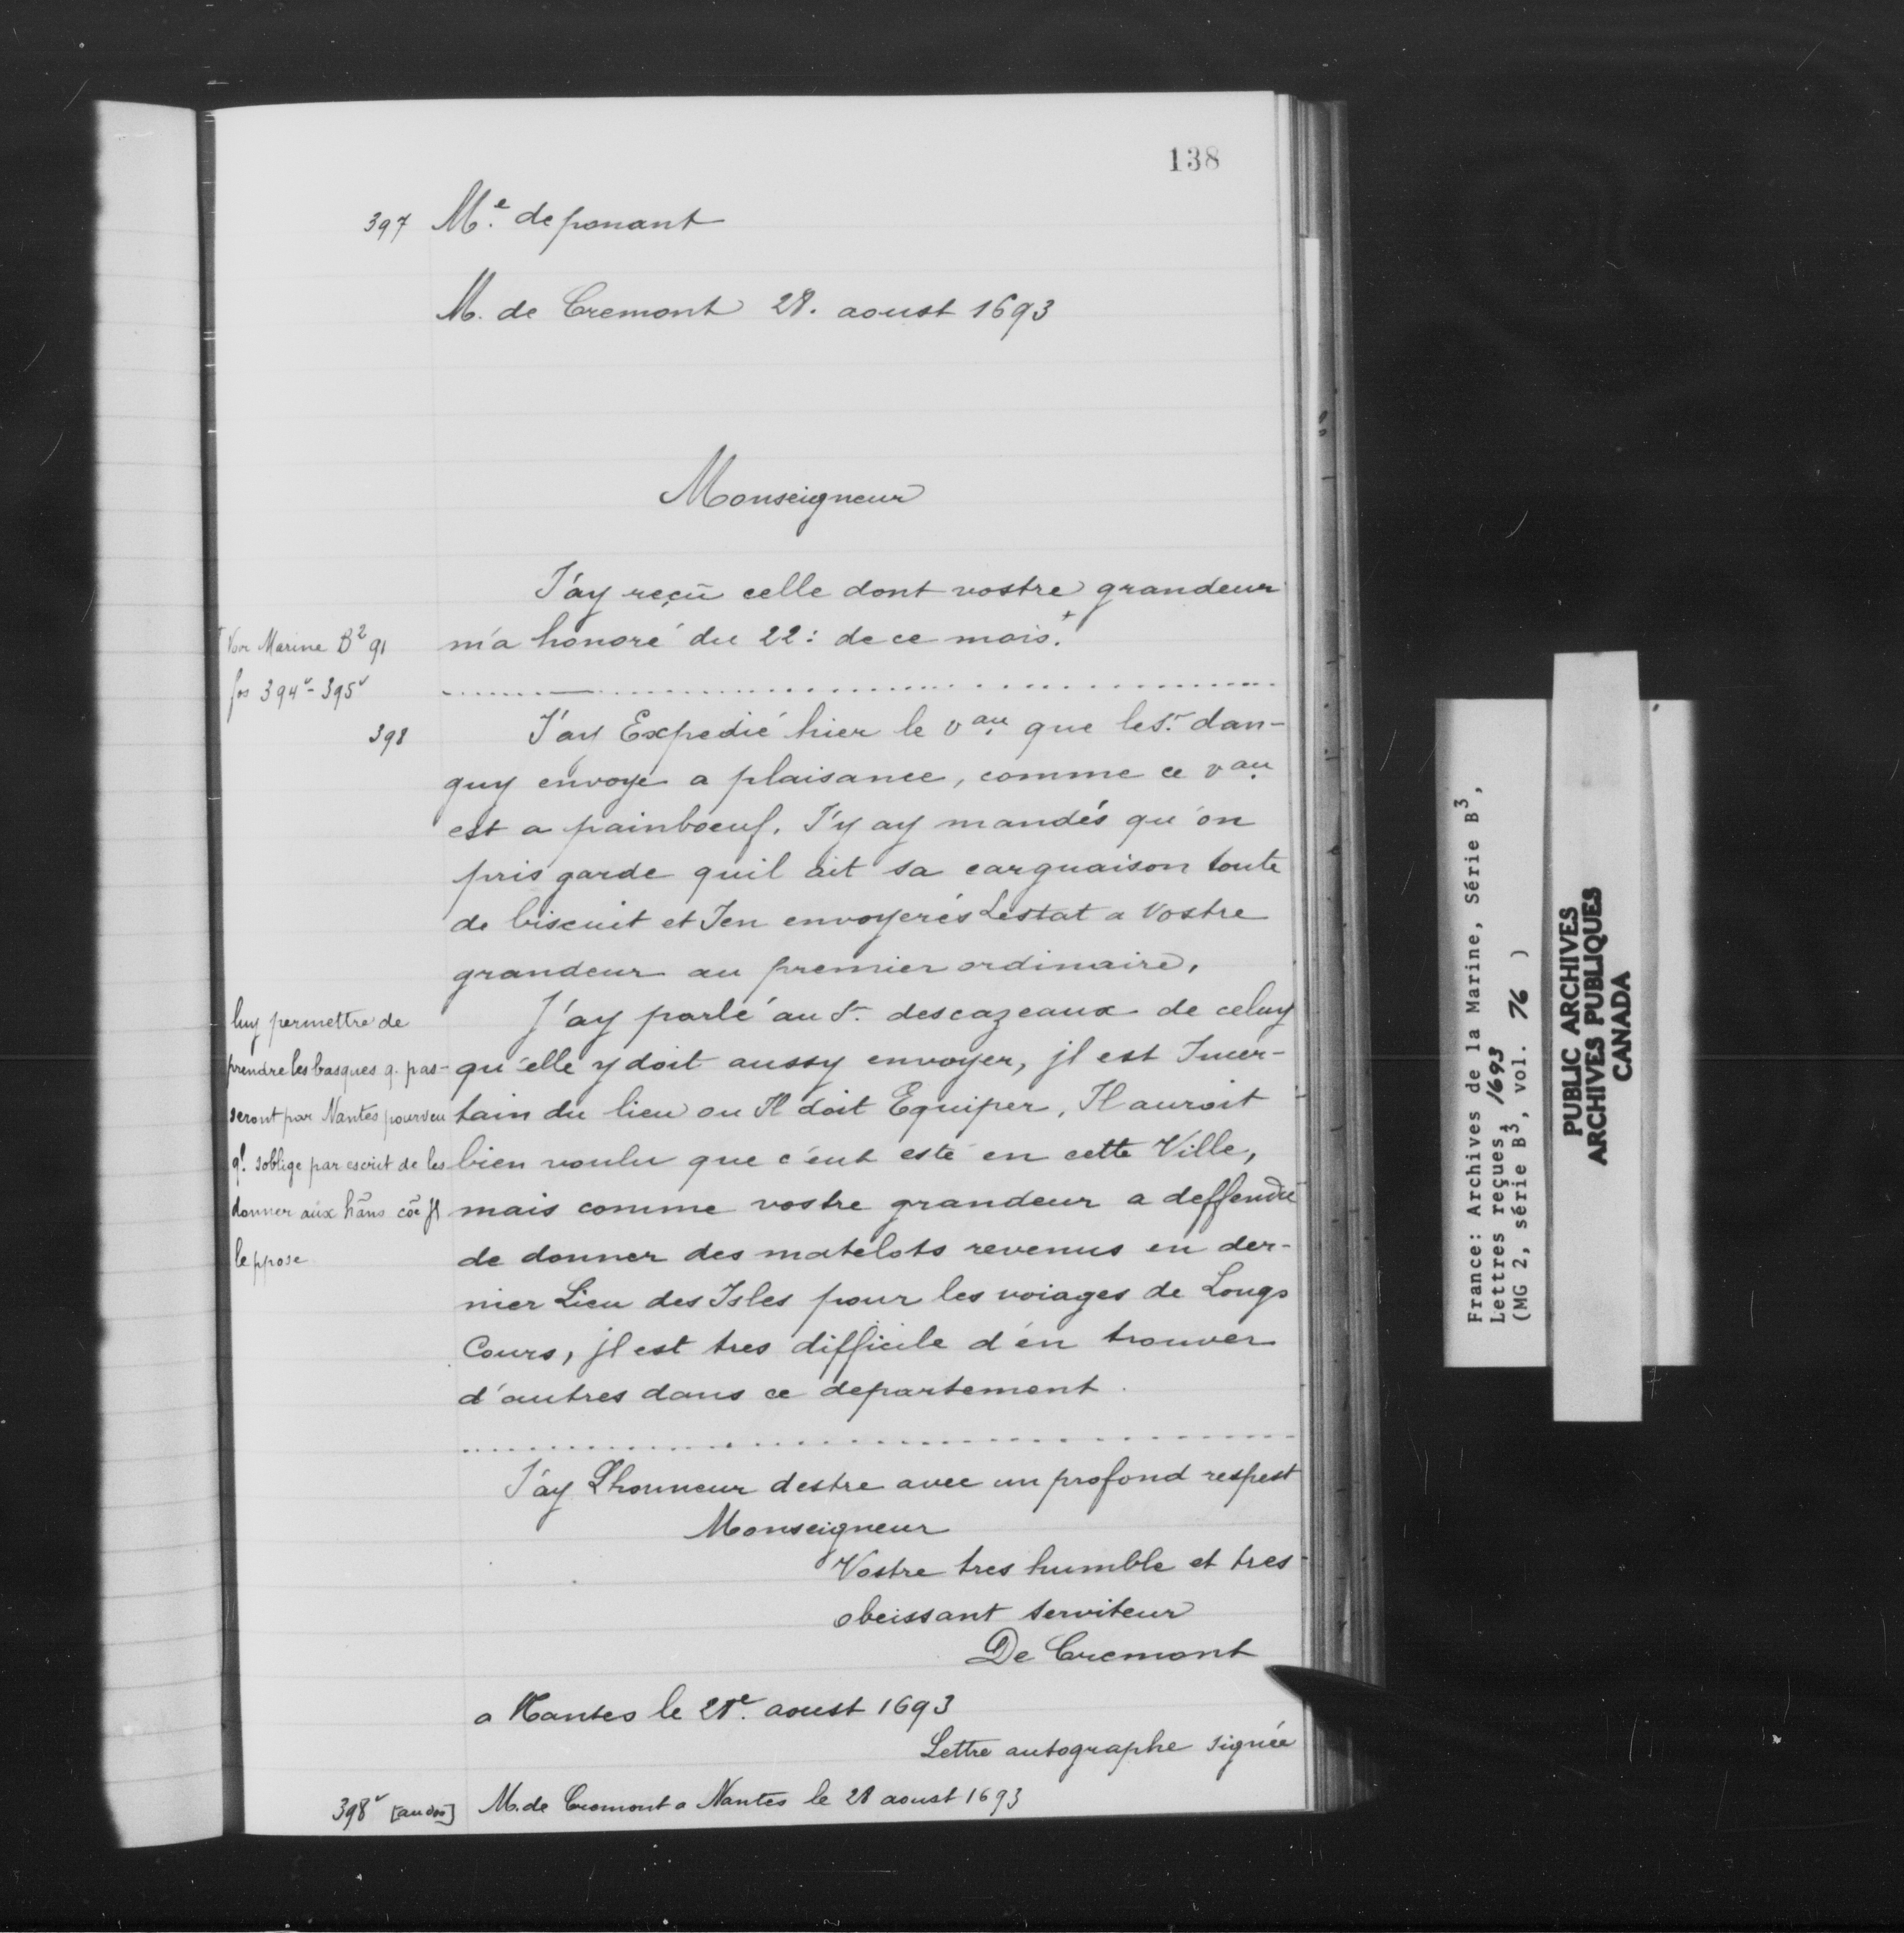 138
397 M.e de ponant
M. de Cremont 28. aoust 1693
Monseigneur
J'ay reçu celle dont vostre grandeur
m'a honoré du 22: de ce mois.+
+ Voir Marine B2 91
fos 394v - 395v
398
J'ay Expedié hier le v.au que le Sr. dan-
guy envoye a plaisance, comme ce v.au
est a painboeuf, J'y ay mandés qu'on
pris garde quil ait sa carguaison toute
de biscuit et Jen envoyerés Lestat a Vostre
grandeur au premier ordinaire,
J'ay parlé au Sr. descazeaux de celuy
qu'elle y doit aussy envoyer, jl est Incer-
tain du lieu ou Il doit Equiper, Il auroit
bien voulu que c'eut esté en cette Ville,
mais comme vostre grandeur a deffendu
de donner des matelots revenus en der-
nier Lieu des Isles pour les voiages de Longs
Cours, jl est tres difficile d'en trouver
d'autres dans ce departement.
luy permettre de
prendre les basques q. pas-
seront par Nantes pourveu
ql. soblige par escrit de les
donner aux hãns cõe jl
le ppose
J'ay L'honneur destre avec un profond respest
Monseigneur
Vostre tres humble et tres
obeissant serviteur
De Cremont
a Nantes le 28e. aoust 1693
Lettre autographe signée
398v [au dos] M. de Cremont a Nantes le 28 aoust 1693
France: Archives de la Marine, Série B3,
Lettres reçues, 1693
(MG 2, série B3, vol. 76 )
PUBLIC ARCHIVES
ARCHIVES PUBLIQUES
CANADA